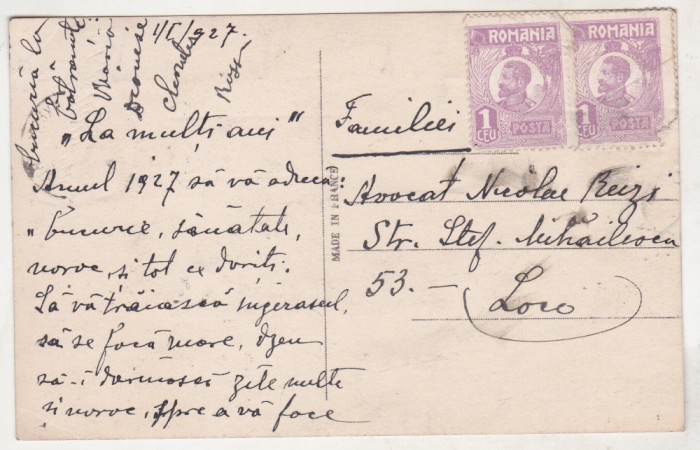 1/I/1927.
"La mulți ani"
Anul 1927 să vă aducă
"bucurie, sănătate,
noroc, și tot ce doriți.
Să vă trăiască îngerașul,
să se facă mare, Dzeu
să-i dăruiască zile multe
și noroc, spre a vă face
bucurie la
bătrânețe
MADE IN FRANCE
ROMANIA
1 LEU
POSTA
ROMANIA
1 LEU
POSTA
Familiei
Avocat Nicolae
Str. Ștef. Mihăileanu
53.—
Loco